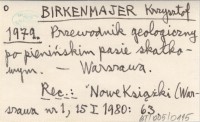 o BIRKENMAJER Krzysztof
1979. Przewodnik geologiczny
po pienińskim pasie skałko-
wym. — Warszawa.
Rec.: Nowe Książki (War-
szawa nr 1, 15 I 1980: 63